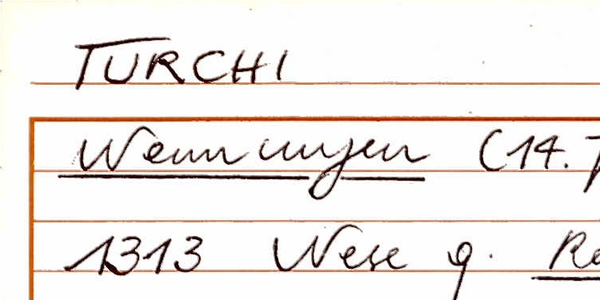 TURCHI
Wenningen (14.
1313 Wese q.